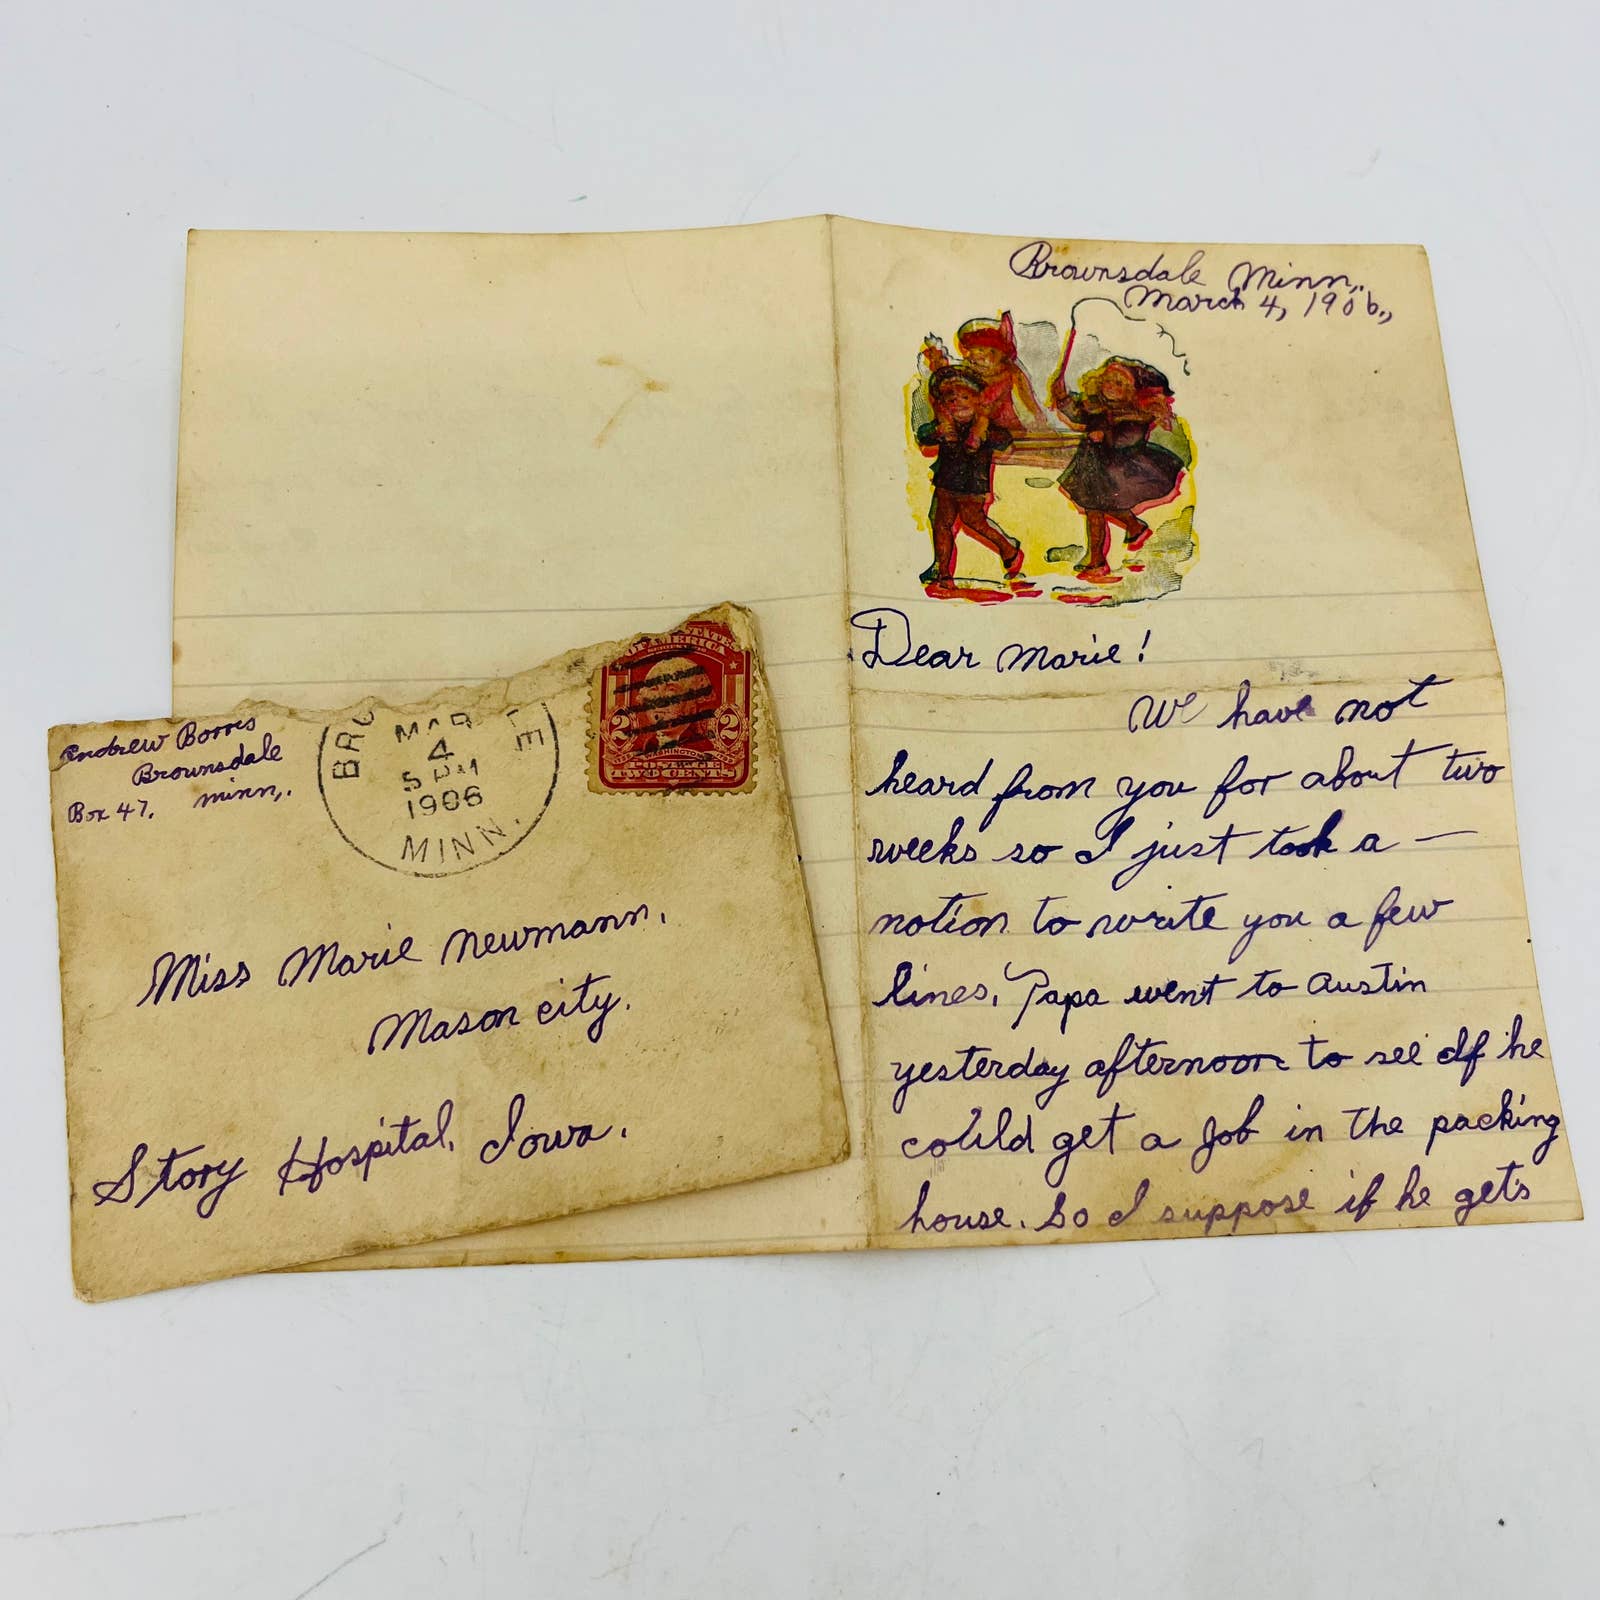 Brownsdale Minn.,
March 4, 1906.,
Dear Marie!
We have not
heard from you for about two
weeks so I just took a —
notion to write you a few
lines. Papa went to Austin
yesterday afternoon to see If he
could get a job in the packing
house. So I suppose if he gets
Andrew Borris
Brownsdale
Box 47. Minn,.
MAR
4
5 PM
1906
MINN.
2 2
WASHINGTON
TWO CENTS
Miss Marie Newmann,
Mason city.
Story Hospital, Iowa.